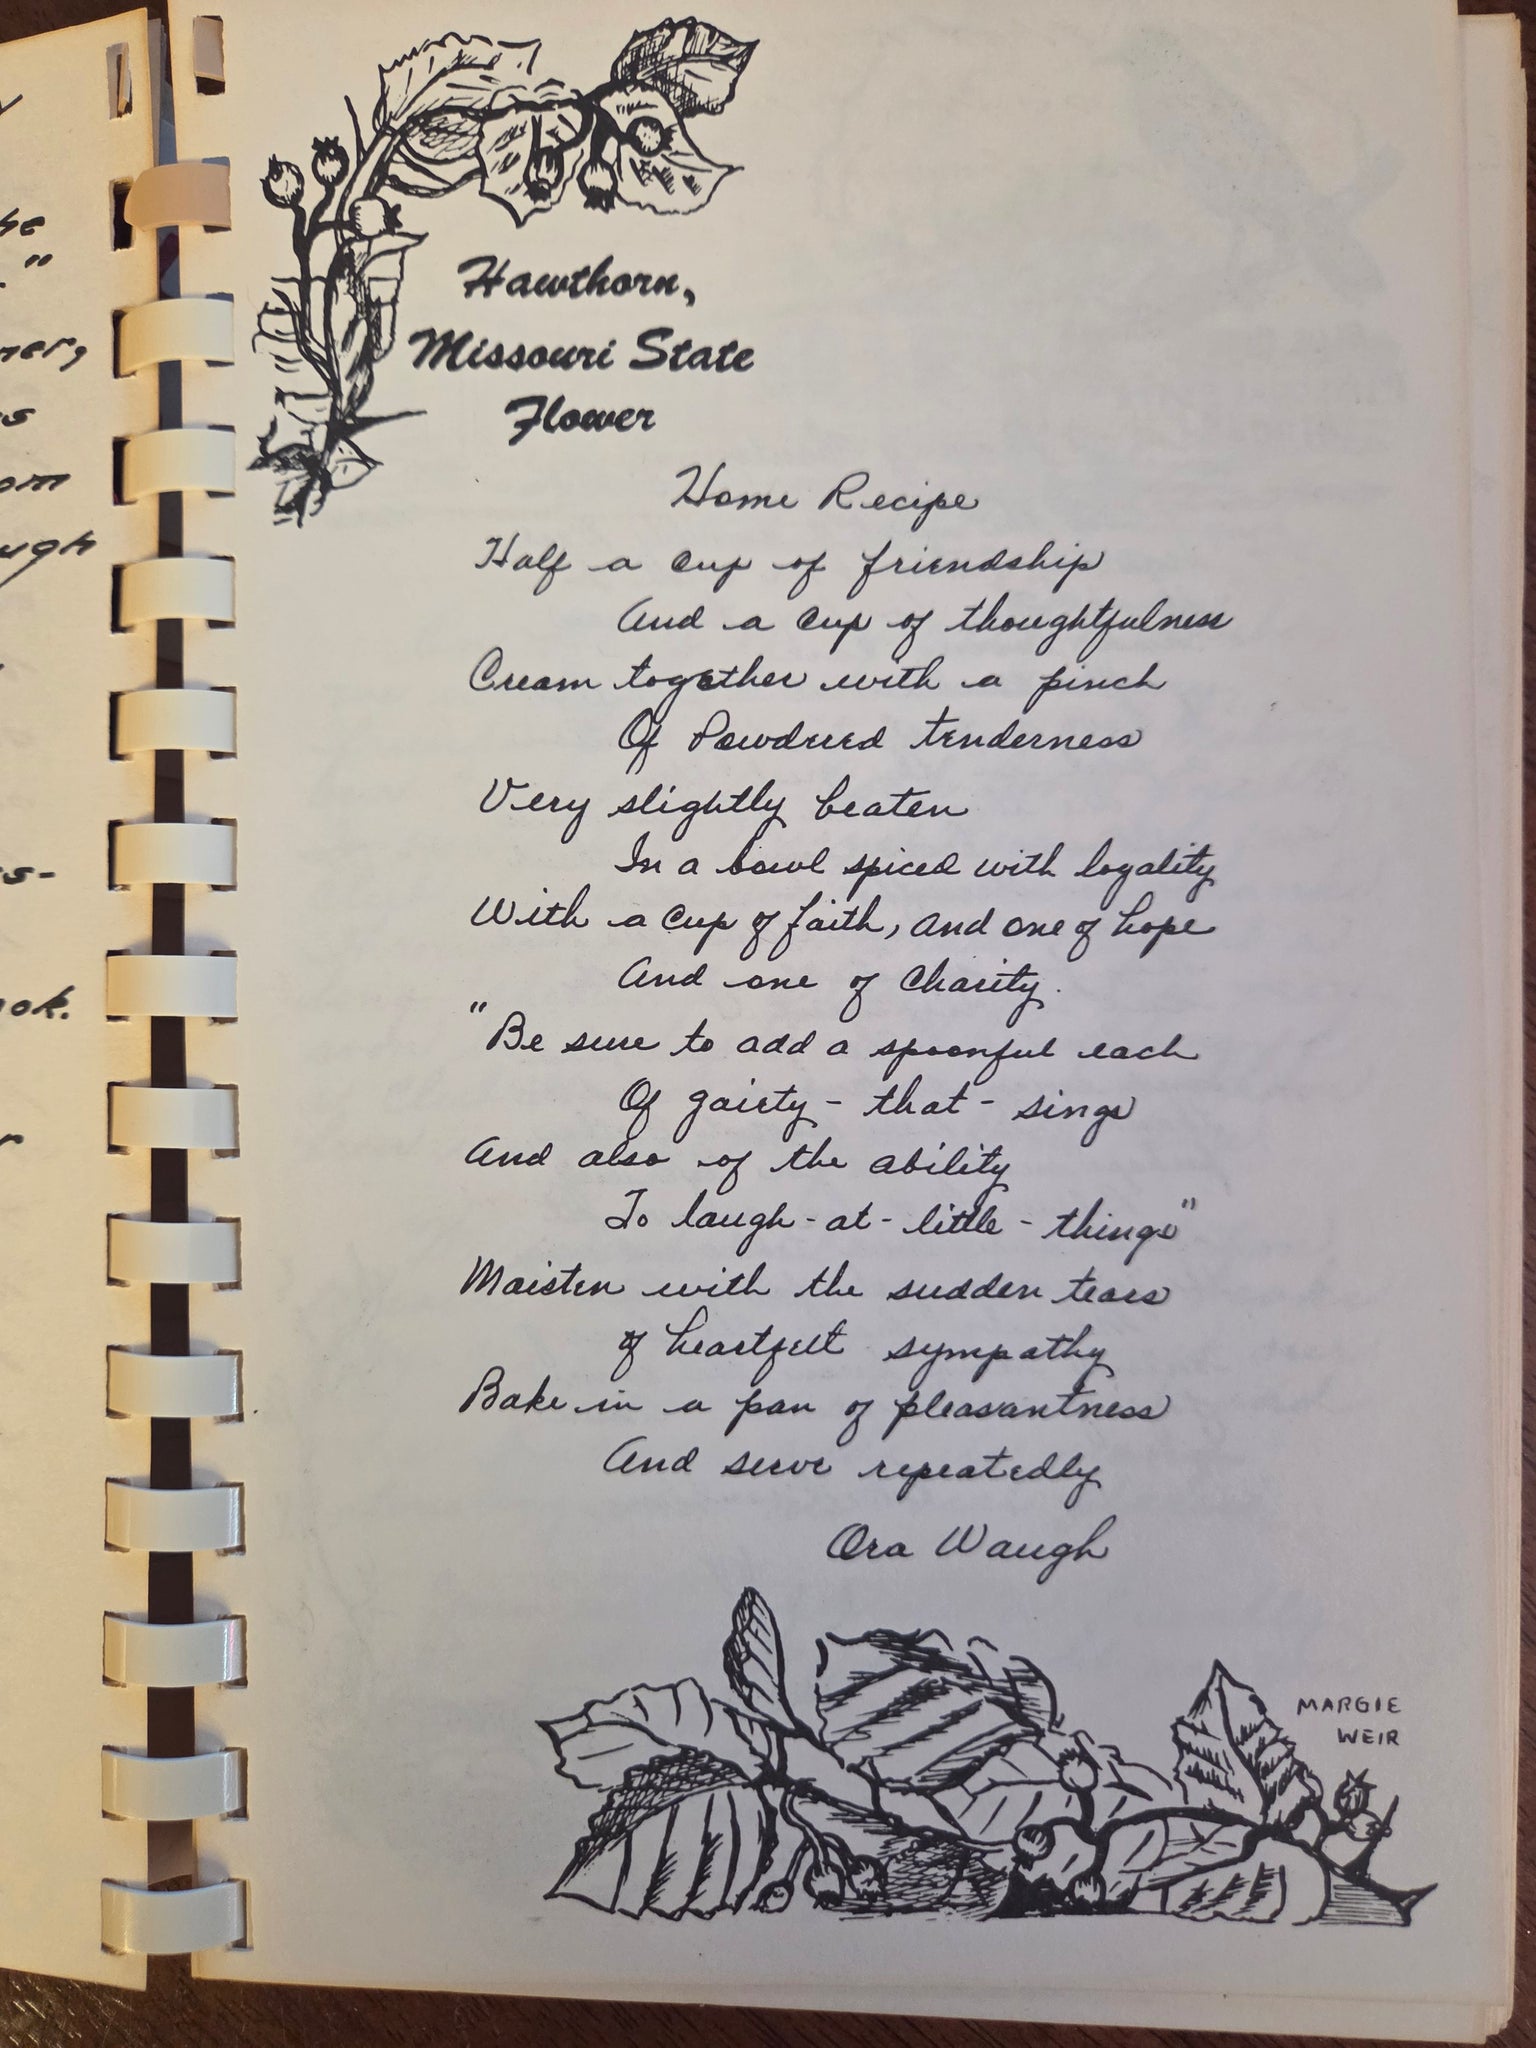 he
."
ner,
s
om
ugh
s-
ok.
r
Hawthorn,
Missouri State
Flower
Home Recipe
Half a cup of friendship
And a cup of thoughtfulness
Cream together with a pinch
Of Powdered tenderness
Very slightly beaten
In a bowl spiced with loyality
With a cup of faith, and one of hope
And one of Charity.
"Be sure to add a spoonful each
Of gaiety - that - sings
And also of the ability
To laugh - at - little - things"
Moisten with the sudden tears
of heartfelt sympathy
Bake in a pan of pleasantness
And serve repeatedly
Ora Waugh
MARGIE
WEIR